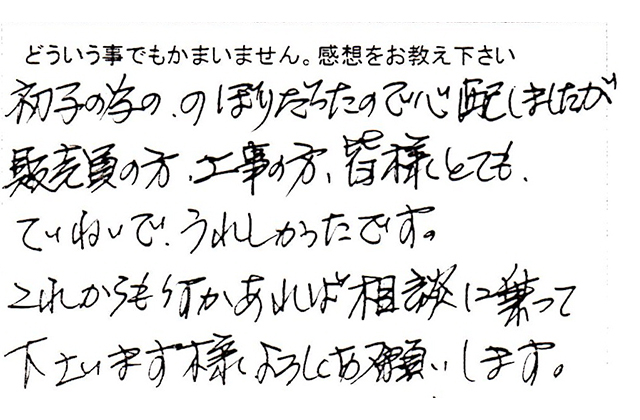 どういう事でもかまいません。感想をお教え下さい
初子の
のでで心配しましたが
販売員の方、工事の方、皆様とても、
ていねいで、うれしかったです。
これからも何かあれば相談に乗って
下さいます様よろしくお願いします。